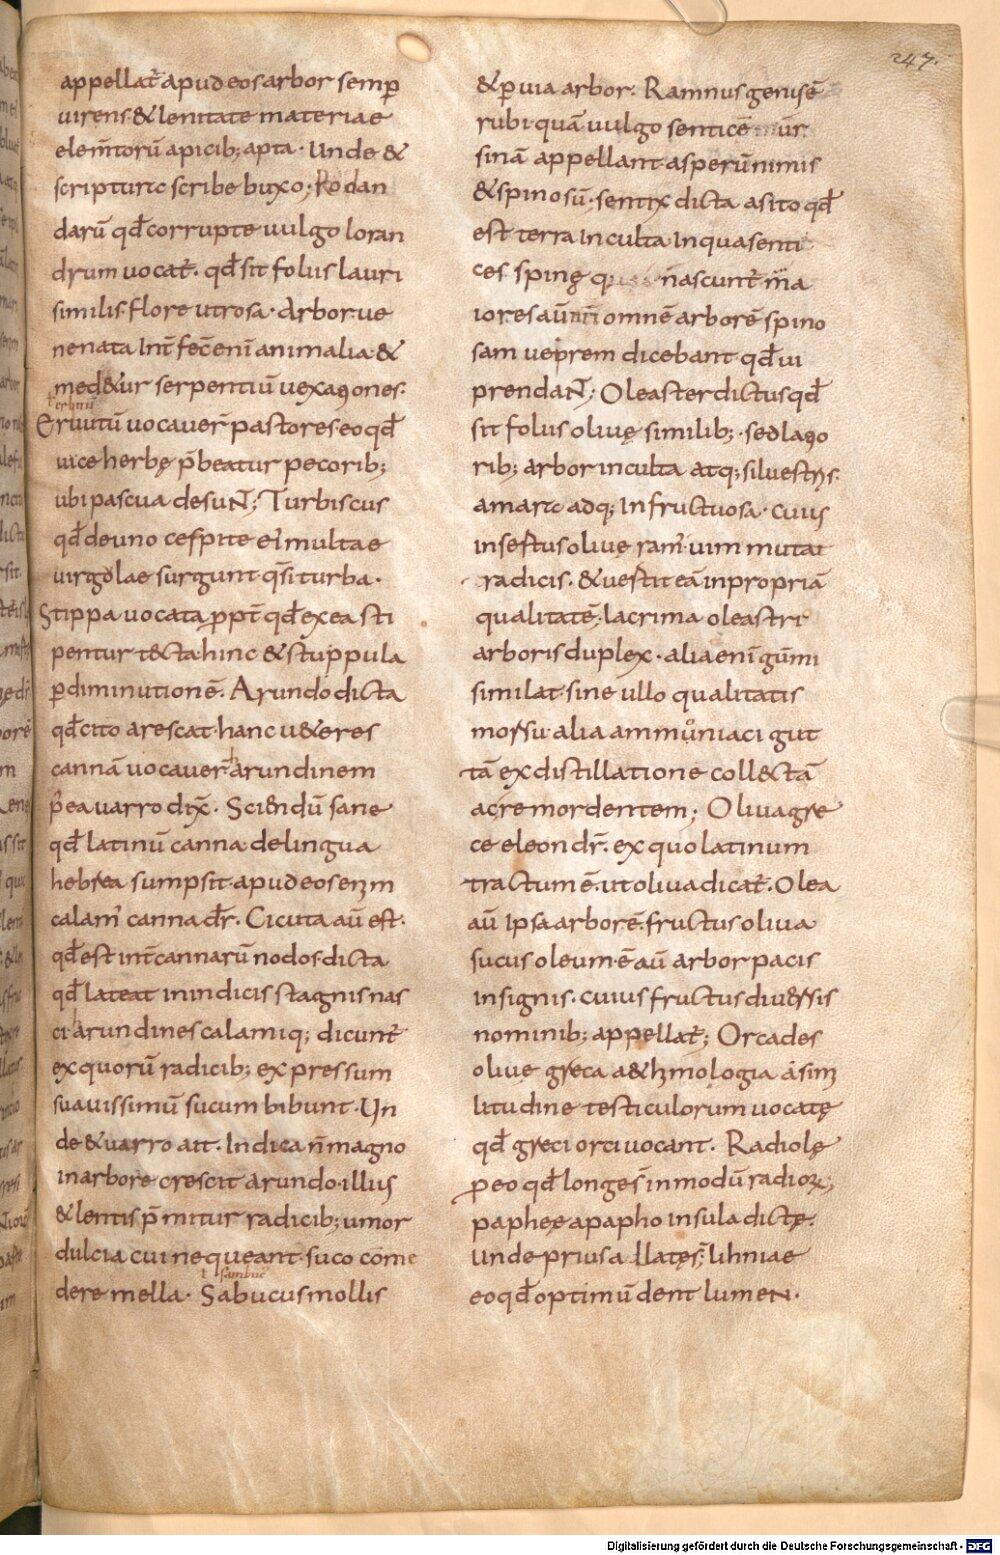 247.
appellat̄ apud eos arbor semꝑ
uirens. & lenitate materiae
elem̄torū apicib; apta. Unde &
scripturæ scribe buxo; Rodan
darū qđ corrupte uulgo loran
drum uocat̄. qđ sit foliis lauri
similis. flore ut rosa. Arbor ue
nenata Int̄fec̄ enī animalia &
med&ur serpentiū uexationes.
ł erbitū
Eruitū uocauer̄ pastores eo qđ
uice herbę p̄beatur pecorib;
ubi pascua desuNt; Turbiscus
qđ de uno cespite ei' multae
uirgolae surgunt q̄si turba.
Stippa uocata ꝓpt̄ qđ ex ea sti
pentur t&cta. hinc & stuppula
ꝑ diminutionē. Arundo dicta
qđ cito arescat. hanc u&eres
cannā uocauer̄ arundinem
p̄ea uarro dix̄. Sciendū sane
qđ latinū canna de lingua
hebrea sumpsit. apud eos enim
calam' canna dr̄. Cicuta aū est.
qđ est int̄ cannarū nodos. dicta
qđ lateat in indicis stagnis nas
ci arundines calamiq; dicunt̄
ex quorū radicib; expressum
suauissimū sucum bibunt. Un
de & uarro ait. Indica n̄ magno
in arbore crescit arundo. illius
& lentis p̄mitur radicib; umor
dulcia cui nequeant suco come
ł sambuc'
dere mella. Sabucus mollis
& ꝑuia arbor. Ramnus genis ē
rubi quā uulgo senticē ūr
sinā appellant asperū nimis
& spinosū. sentix dicta a sito qđ
est terra Inculta In qua senti
ces spinę nascunt̄ m̄a
iores aū omnē arborē spino
sam ueprem dicebant qđ ui
prendaNt; Oleaster dictus qđ
sit foliis oliuę similib; . sed latio
rib; arbor inculta atq; siluestris.
amaræ adq; Infructuosa. cuius
insertus oliue ram' uim mutat
radicis. & uestit eā in propriā
qualitatē. lacrima oleastri
arboris duplex. alia enī gūmi
similat. sine ullo qualitatis
morsu. alia ammoniaci gut
tā ex distillatione coll&ctā
acre mordentem; Oliua gre
ce eleon dr̄. ex quo latinum
tractum ē. ut oliua dicat̄. Olea
aū Ipsa arbor ē. fructus oliua
sucus oleum. ē aū arbor pacis
insignis. cuius fructus diuersis
nominib; appellat̄; Orcades
oliue greca a&himologia a sim
litudine testiculorum uocatę
qđ greci orci uocant. Radiolę
ꝑ eo qđ longe s̄ in modū radioꝝ;
paphee a papho insula dictę.
Unde prius allatę s̄. lihniae
eo qđ optimū dent lumeN.
Digitalisierung gefördert durch die Deutsche Forschungsgemeinschaft - DFG